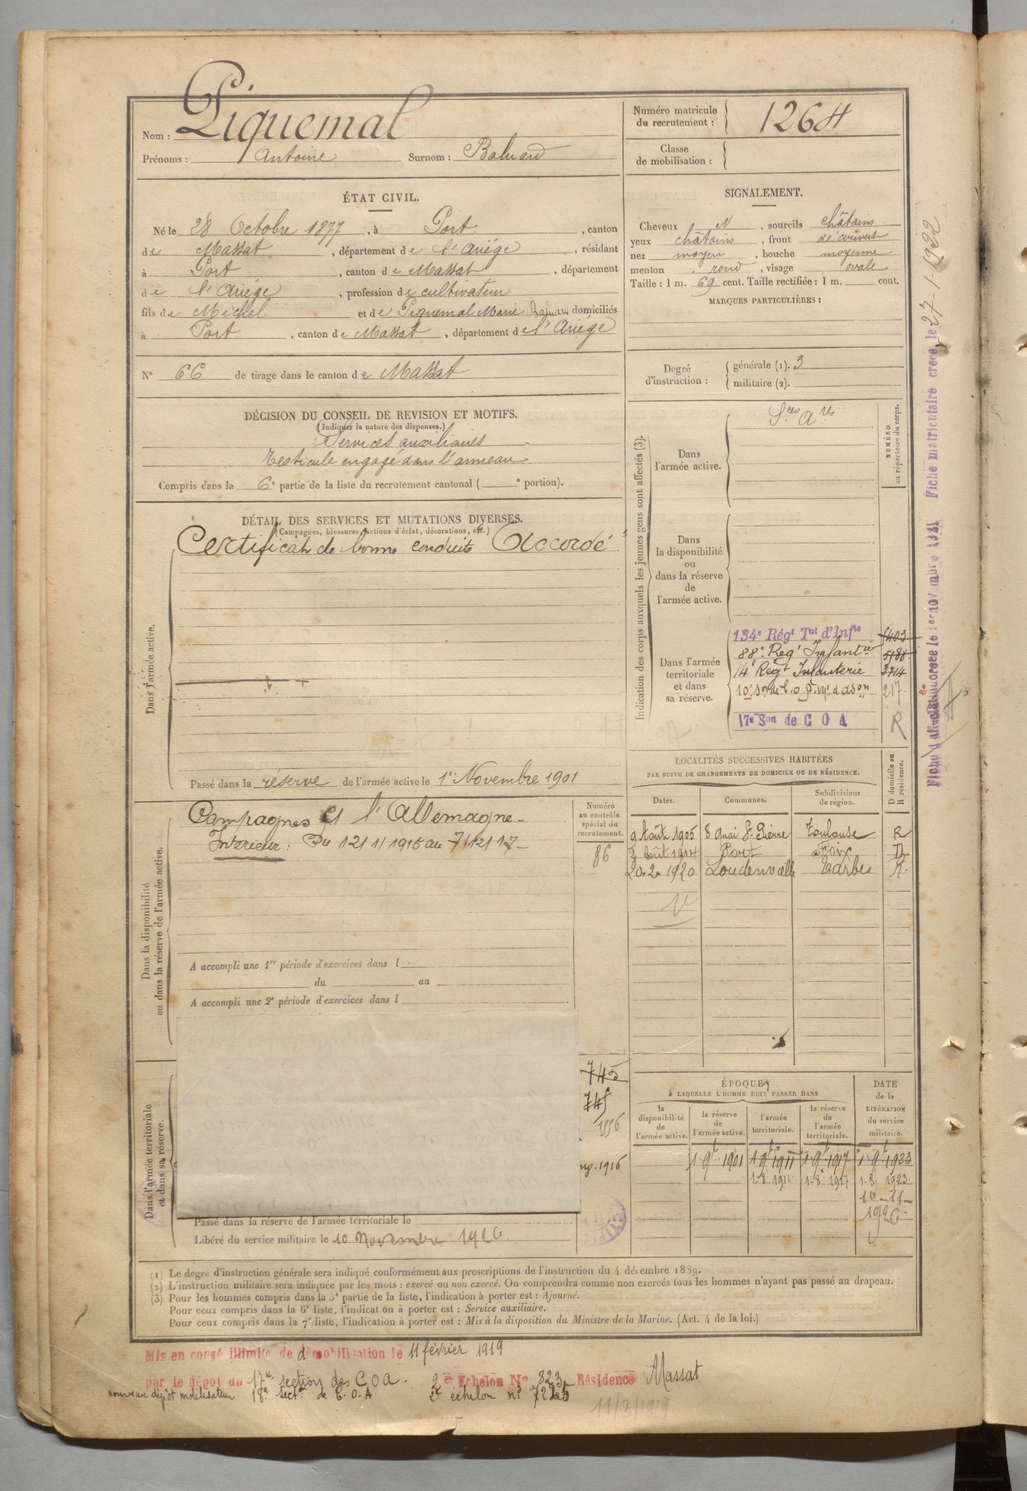 Nom : Piquemal
Prénoms : Antoine Surnom : Baluard
Numéro matricule du recrutement : 1264
Classe de mobilisation :
ÉTAT CIVIL.
Né le 28 Octobre 1877, à Port, canton
de Massat, département de l'Ariège, résidant
à Port, canton de Massat, département
de l'Ariège, profession de cultivateur
fils de Michel et de Piquemal Marie Baluard domiciliés
à Port, canton de Massat, département de l'Ariège
N° 66 de tirage dans le canton de Massat
SIGNALEMENT.
Cheveux N, sourcils châtains
yeux châtains, front découvert
nez moyen, bouche moyenne
menton rond, visage ovale
Taille : 1 m. 69 cent. Taille rectifiée : 1 m. cent.
MARQUES PARTICULIÈRES :
Degré d'instruction : générale (1). 3
militaire (2).
DÉCISION DU CONSEIL DE REVISION ET MOTIFS.
(Indiquer la nature des dispenses.)
Services auxiliaires
Testicule engagé dans l'anneau
Compris dans la 6e partie de la liste du recrutement cantonal ( e portion).
DÉTAIL DES SERVICES ET MUTATIONS DIVERSES.
(Campagnes, blessures, actions d'éclat, décorations, etc.)
Certificat de bonne conduite Accordé
Dans l'armée active.
Passé dans la réserve de l'armée active le 1er Novembre 1901
Indication des corps auxquels les jeunes gens sont affectés (3).
NUMÉRO au répertoire du corps.
Dans l'armée active.
Sces Ares
Dans la disponibilité ou dans la réserve de l'armée active.
Dans l'armée territoriale et dans sa réserve.
134e Régt Tal d'Infie
88e Regt Infantie 5188
14e Regt Infanterie 3714
217
17e Son de C O A R
Dans la disponibilité ou dans la réserve de l'armée active.
Campagnes Ct l'Allemagne
Intérieur : Du 12 | 1 | 1916 au 7 | 12 | 17
A accompli une 1re période d'exercices dans l
du au
A accompli une 2e période d'exercices dans l
Numéro au contrôle spécial du recrutement.
86
LOCALITÉS SUCCESSIVES HABITÉES
PAR SUITE DE CHANGEMENTS DE DOMICILE OU DE RÉSIDENCE.
Dates. Communes. Subdivisions de région. D domicile ou R résidence.
9 Août 1905 8 Quai St Pierre Toulouse R
2 Août 1914 Port Foix D
20-2-1920 Loudenvielle Tarbes R
V
Dans l'armée territoriale et dans sa réserve.
745
1916
Passé dans la réserve de l'armée territoriale le
Libéré du service militaire le 10 Novembre 1926
ÉPOQUES
À LAQUELLE L'HOMME DOIT PASSER DANS
la disponibilité de l'armée active. la réserve de l'armée active. l'armée territoriale. la réserve de l'armée territoriale. DATE de la LIBÉRATION du service militaire.
1 9t 1901 1 9t 1911 1 9t 1917 1 9t 1923
1-8 1911 1-8 1917 1-8 1923
10-11-1926
(1) Le degré d'instruction générale sera indiqué conformément aux prescriptions de l'instruction du 4 décembre 1889.
(2) L'instruction militaire sera indiquée par les mots : exercé ou non exercé. On comprendra comme non exercés tous les hommes n'ayant pas passé au drapeau.
(3) Pour les hommes compris dans la 5e partie de la liste, l'indication à porter est : Ajourné.
Pour ceux compris dans la 6e liste, l'indication à porter est : Service auxiliaire.
Pour ceux compris dans la 7e liste, l'indication à porter est : Mis à la disposition du Ministre de la Marine. (Art. 4 de la loi.)
Mis en congé illimité de démobilisation le 11 février 1919
par le dépôt du 17e section des COA. 2e Echelon N° 823 Résidence Massat
nouveau dépôt mobilisateur 18e Sectn de C.O.A 2e échelon n° 7245
11/2/1919
Fiche matriculaire créée le 27-1-1922